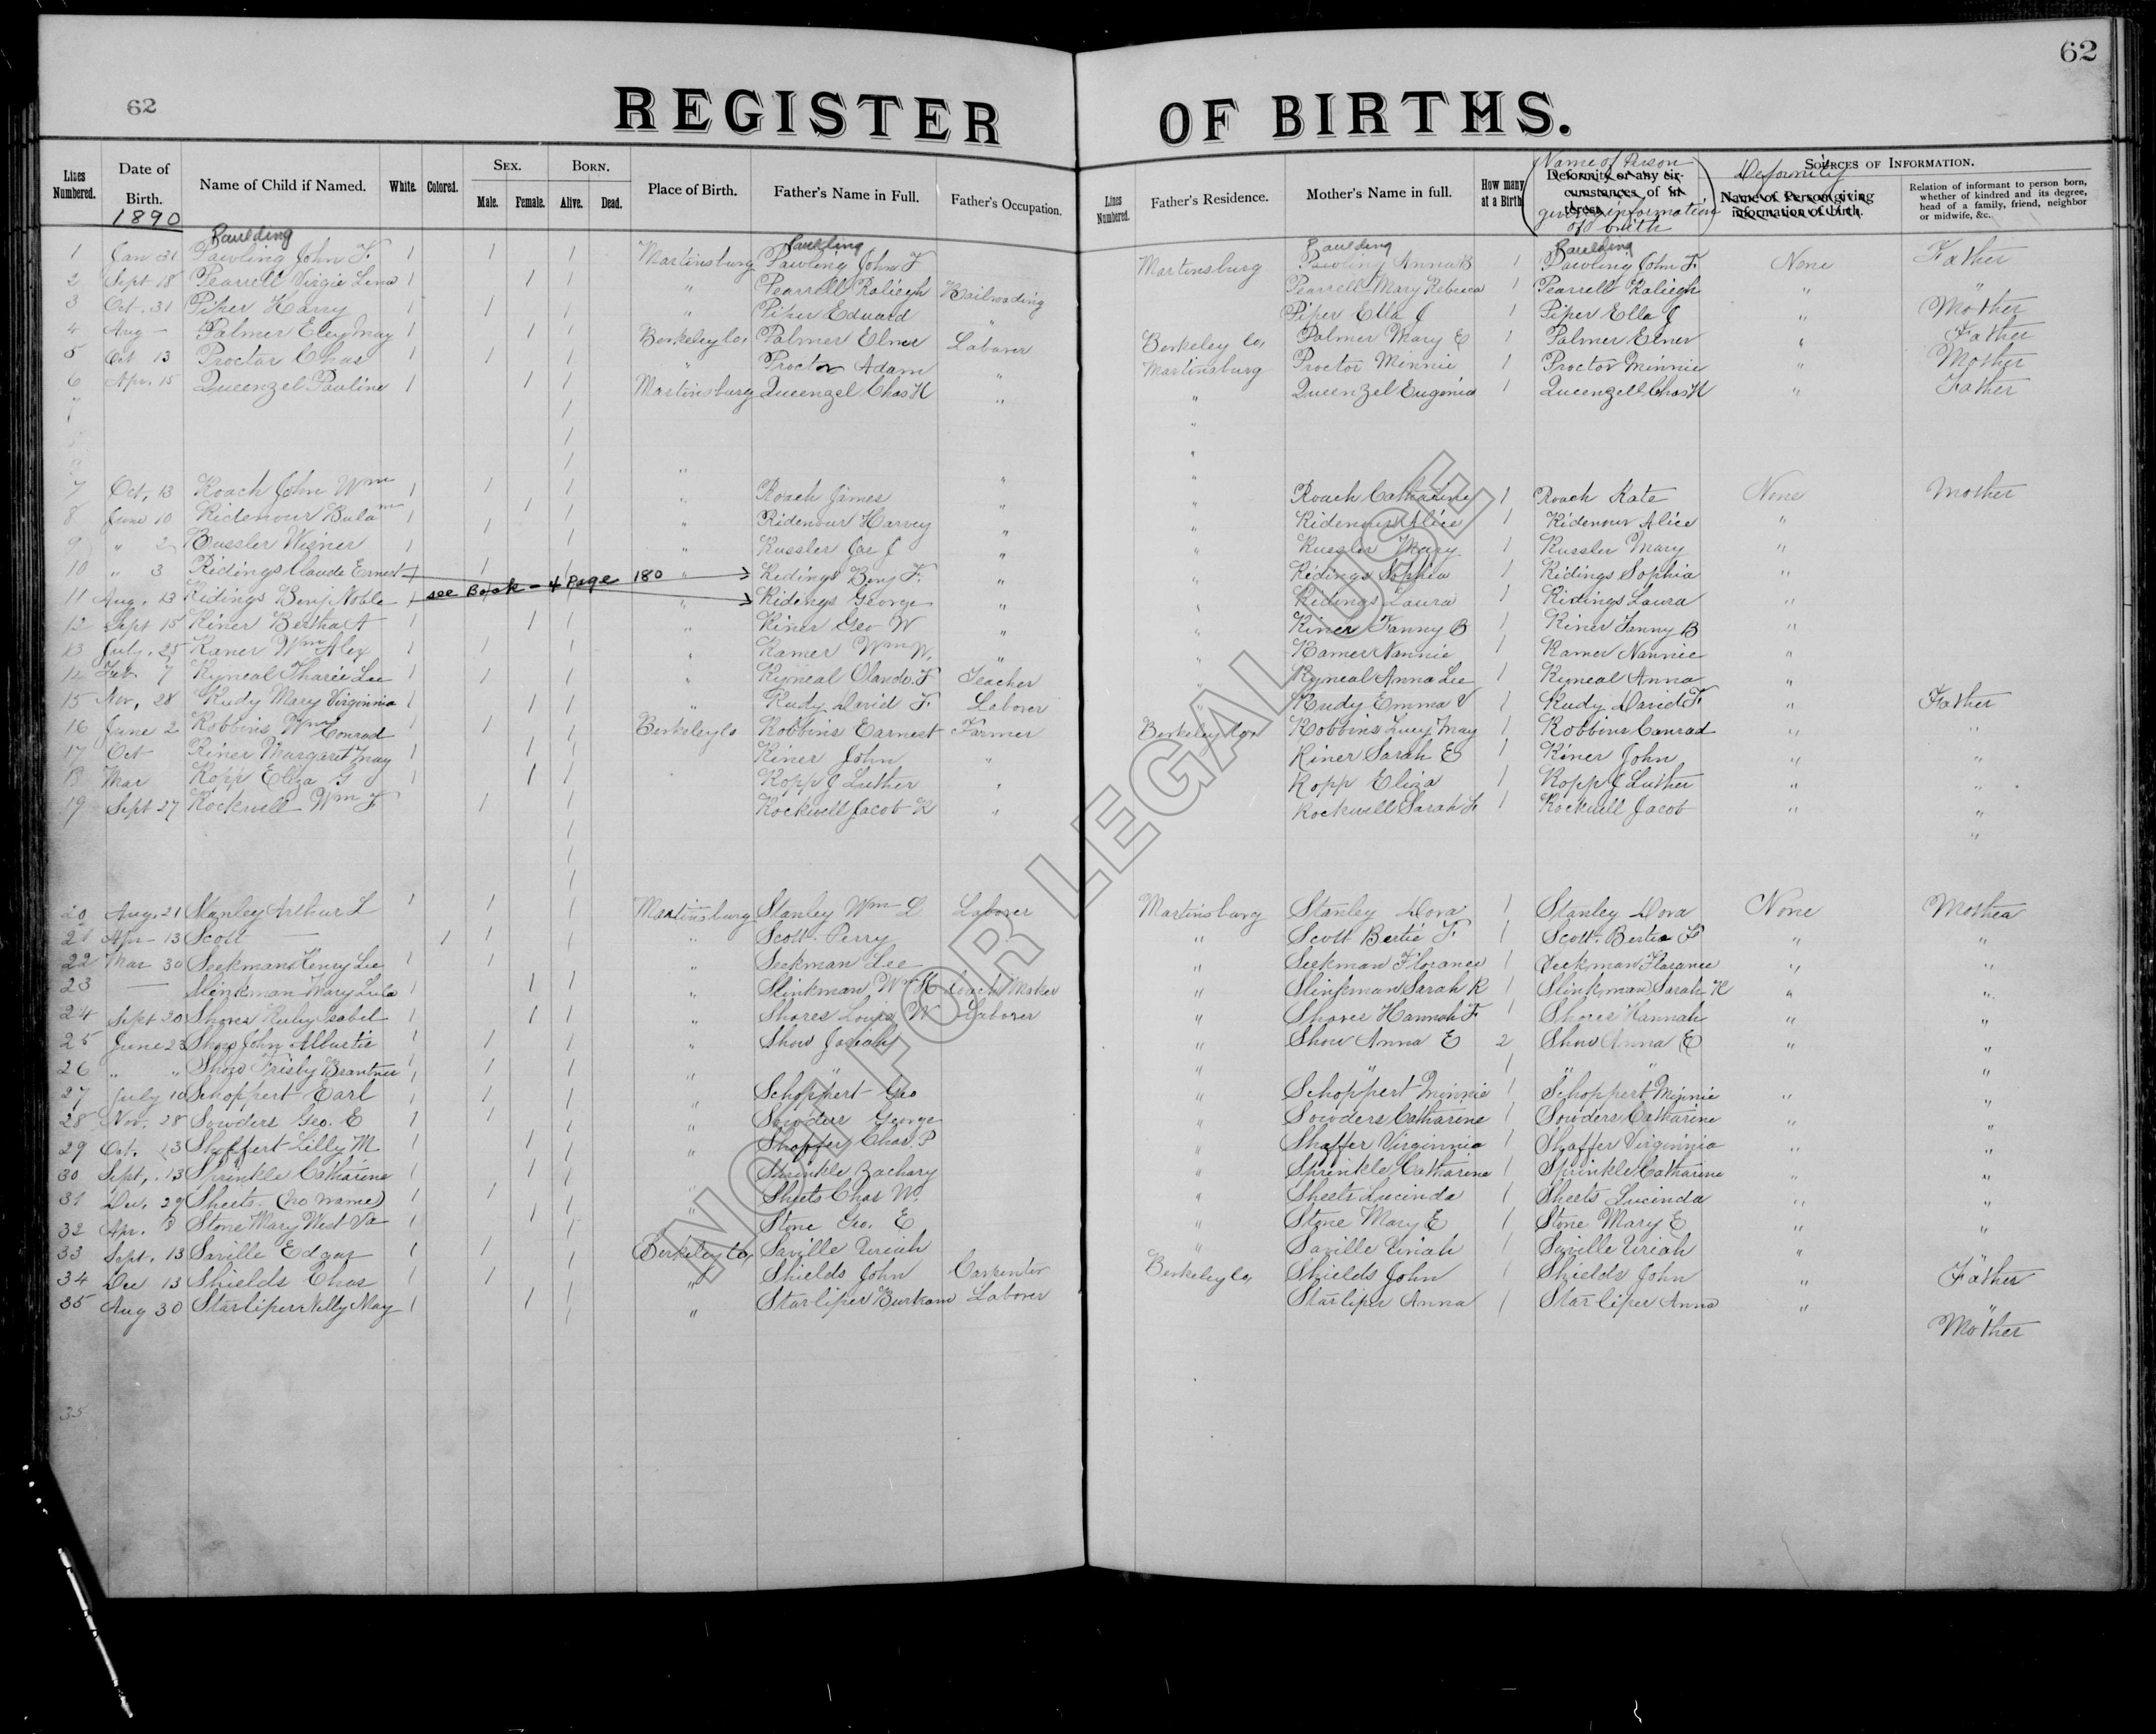 62
62
REGISTER OF BIRTHS.
Lines Numbered. Date of Birth. Name of Child if Named. White. Colored. Sex. Male. Female. Born. Alive. Dead. Place of Birth. Father's Name in Full. Father's Occupation. Lines Numbered. Father's Residence. Mother's Name in full. How many at a Birth Deformity or any circumstances of interest. Sources of Information. Name of Person giving information of birth. Relation of informant to person born, whether of kindred and its degree, head of a family, friend, neighbor or midwife, &c.
1890 (Name of Person giving information of birth) Deformity
Paulding Paulding Paulding Paulding
1 Jan 31 Pawling John F. 1 1 1 Martinsburg Pawling John F Martinsburg Pawling Anna B 1 Pawling John F. None Father
2 Sept 18 Pearrell Virgie Lena 1 1 1 " Pearrell Raliegh Railroading Pearrell Mary Rebecca 1 Pearrell Raliegh " "
3 Oct. 31 Piper Harry 1 1 1 " Piper Edward " Piper Ella J 1 Piper Ella J " Mother
4 Aug – Palmer May 1 1 1 Berkeley Co, Palmer Elmer Laborer Berkeley Co, Palmer Mary E 1 Palmer Elmer " Father
5 Oct 13 Proctor Chas 1 1 1 " Proctor Adam " Martinsburg Proctor Minnie 1 Proctor Minnie " Mother
6 Apr. 15 Queenzel Pauline 1 1 1 Martinsburg Queenzel Chas H " " Queenzel Eugenia 1 Queenzel Chas H " Father
7 Oct, 13 Roach John Wm 1 1 1 " Roach James " " Roach Catharine 1 Roach Kate None Mother
8 June 10 Ridenour Bula m 1 1 1 " Ridenour Harvey " " Ridenour Alice 1 Ridenour Alice "
9 " 2 Russler Wisner 1 1 1 " Russler Jas J " " Russler Mary 1 Russler Mary "
10 " 3 Ridings Claude Ernest 1 1 1 " Ridings Benj F. " " Ridings Sophia 1 Ridings Sophia "
see Book - 4 Page 180
11 Aug. 13 Ridings Benj Noble 1 1 " Ridings George " " Ridings Laura 1 Ridings Laura "
12 Sept 15 Riner Bertha A 1 1 1 " Riner Geo W " " Riner Fanny B 1 Riner Fanny B "
13 July. 25 Ramer Wm Alex 1 1 1 " Ramer Wm W. " " Ramer Nannie 1 Ramer Nannie "
14 Feb. 7 Ryneal Lee 1 1 1 " Ryneal Olando. F Teacher " Ryneal Anna Lee 1 Ryneal Anna "
15 Nov, 28 Rudy Mary Virginnia 1 1 1 " Rudy David F. Laborer " Rudy Emma V 1 Rudy David F. " Father
16 June 2 Robbins Wm Conrad 1 1 1 Berkeley Co Robbins Earnest Farmer Berkeley Co, Robbins Lucy May 1 Robbins Conrad " "
17 Oct Riner Margaret May 1 1 1 Riner John " Riner Sarah E 1 Riner John " "
18 Mar Kopp Eliza G 1 1 1 Kopp J Luther " Kopp Eliza 1 Kopp J Luther " "
19 Sept 27 Rockwell Wm F 1 1 Rockwell Jacob " Rockwell Sarah F. 1 Rockwell Jacob " "
20 Aug. 21 Stanley Arthur L 1 1 1 Martinsburg Stanley Wm L Laborer Martinsburg Stanley Dora 1 Stanley Dora None Mother
21 Apr – 13 Scott — 1 1 1 " Scott Perry " Scott Bertie F. 1 Scott Bertie F " "
22 Mar 30 Seekman Henry Lee 1 1 " Seekman Lee " Seekman Florance 1 Seekman Florance " "
23 — Slinkman Mary Lula 1 1 1 " Slinkman Wm H Coach Maker " Slinkman Sarah K 1 Slinkman Sarah K " "
24 Sept 20 Shores Ruby Isabel 1 1 1 " Shores Louis W Laborer " Shores Hannah F. 1 Shores Hannah " "
25 June 23 Show John Alburtis 1 1 1 " Show Josiah " Show Anna E 2 Show Anna E " "
26 " " Show Frisby Brantner 1 1 1 " " " " 1 " "
27 July 10 Schoppert Earl 1 1 1 " Schoppert Geo " Schoppert Minnie 1 Schoppert Minnie " "
28 Nov. 28 Sowders Geo. E 1 1 1 " Sowders George " Sowders Catharine 1 Sowders Catharine " "
29 Oct. 13 Shaffert Lilly M 1 1 1 " Shaffer Chas. P " Shaffer Virginnia 1 Shaffer Virginnia " "
30 Sept. 13 Sprinkle Catharine 1 1 1 Sprinkle Zachary " Sprinkle Catharine 1 Sprinkle Catharine " "
31 Dec. 29 Sheets (no name) 1 1 1 " Sheets Chas W. " Sheets Lucinda 1 Sheets Lucinda " "
32 Apr. Stone Mary West Va 1 1 1 " Stone Geo. E " Stone Mary E 1 Stone Mary E " "
33 Sept. 13 Saville Edgar 1 1 1 Berkeley Co, Saville Uriah " Saville Uriah 1 Saville Uriah "
34 Dec 13 Shields Chas 1 1 1 " Shields John Carpenter Berkeley Co, Shields John 1 Shields John " Father
35 Aug 30 Starliper Nelly May 1 1 1 " Starliper Burtram Laborer Starliper Anna 1 Starliper Anna " "
Mother
35
NOT FOR LEGAL USE